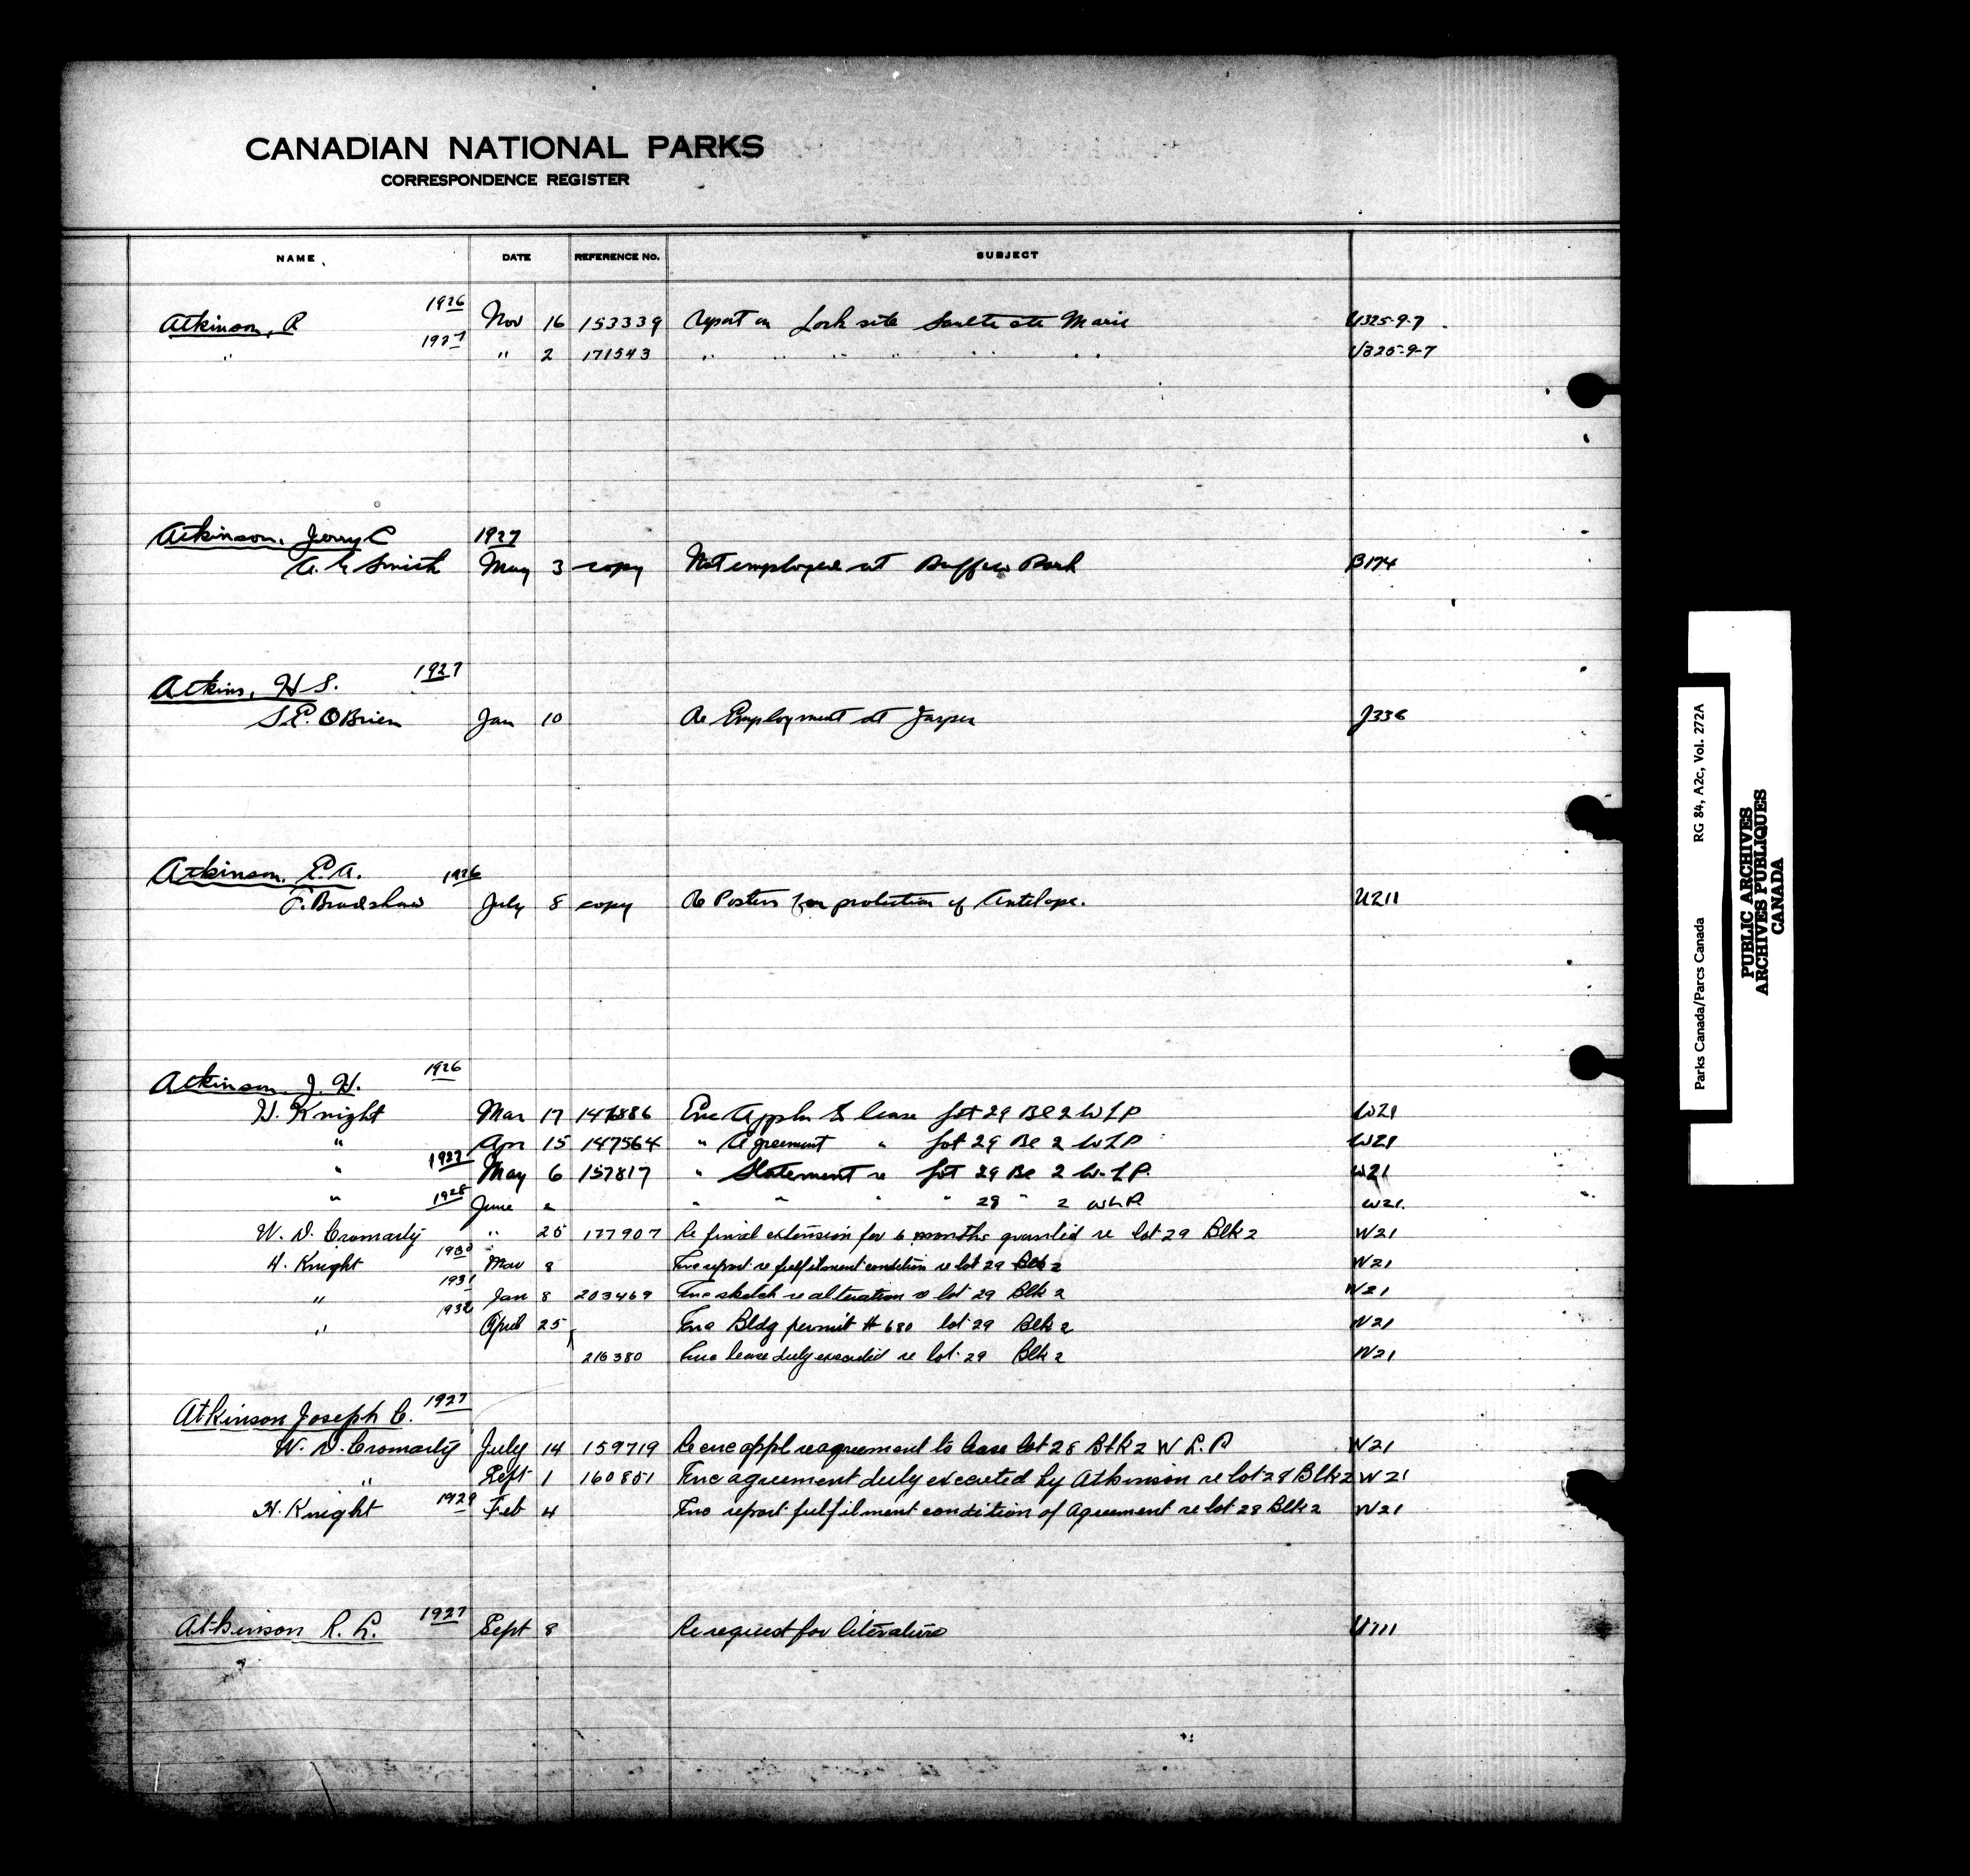 CANADIAN NATIONAL PARKS
CORRESPONDENCE REGISTER
NAME DATE REFERENCE No. SUBJECT
Atkinson, R 1926 Nov 16 153339 Report on Lock site Saulte ste Marie U325-9-7
" 1927 " 2 171543 " " " " " " " U325-9-7
Atkinson, Jerry C 1927
A. G. Smith May 3 copy Not employed at Buffalo Park B174
Atkins, H S. 1927
S.E. OBrien Jan 10 Re Employment at Jasper J336
Atkinson, E.A. 1926
F. Bradshaw July 8 copy Re Posters for protection of Antelope. U211
Atkinson, J. H. 1926
H. Knight Mar 17 147886 Enc Appln & lease Lot 29 Bl 2 W L P W21
" Apr 15 147564 " Agreement " Lot 29 Bl 2 W L P W21
" 1927 May 6 157817 " Statement re Lot 29 Bl 2 W. L P. W21
" 1928 June 2 " " " " 29 " 2 W L P. W21.
W. D. Cromarty " 25 177907 Re final extension for 6 months granted re lot 29 Blk 2 W21
H. Knight 1930 Mar 8 Enc report re fulfilment condition re lot 29 Blk 2 W21
" 1931 Jan 8 203469 Enc sketch re alteration re lot 29 Blk 2 W21
" 1932 April 25 Enc Bldg permit # 680 lot 29 Blk 2 W21
216380 Enc lease duly executed re lot 29 Blk 2 W21
Atkinson Joseph C. 1927
W. D. Cromarty July 14 159719 Re enc appl re agreement to lease lot 28 Blk 2 W L. P W21
" Sept 1 160851 Enc agreement duly executed by Atkinson re lot 28 Blk 2 W21
H. Knight 1929 Feb 4 Enc report fulfilment condition of Agreement re lot 28 Blk 2 W21
Atkinson R. L. 1927 Sept 8 Re request for literature U111
Parks Canada/Parcs Canada RG 84, A2c, Vol. 272A
PUBLIC ARCHIVES
ARCHIVES PUBLIQUES
CANADA